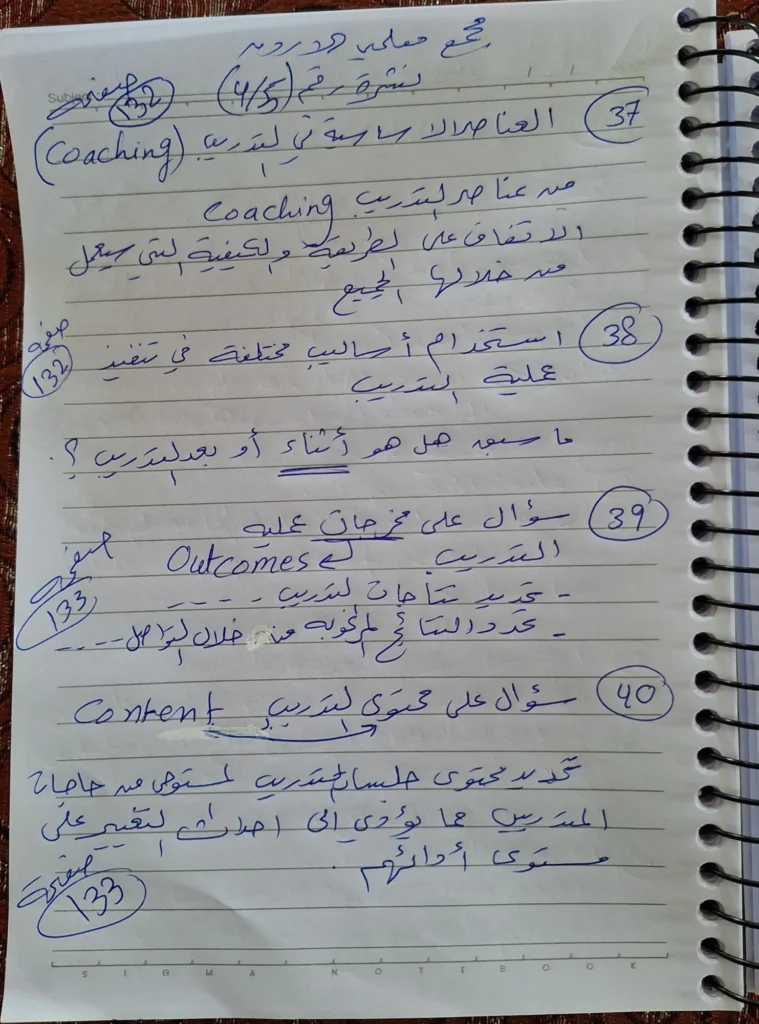 مجمع معلمي الاردن
نشرة رقم (4/5)
Subject
صفحة 132
37 العناصر الاساسية في التدريب (Coaching)
من عناصر التدريب Coaching
الاتفاق على الطريقة والكيفية التي سيعمل
من خلالها الجميع
38 استخدام أساليب مختلفة في تنفيذ
صفحة 132
عملية التدريب
ما سبق هل هو أثناء أو بعد التدريب ؟.
39 سؤال على مخرجات عملية
التدريب Outcomes
صفحة 133
- تحديد نتاجات التدريب - - - -
- تحدد النتائج المرغوبه من خلال التواصل ----
40 سؤال على محتوى التدريب Content
تحديد محتوى جلسات التدريب المستوحى من حاجات
المتدربين مما يؤدي الى احداث التغيير على
مستوى أدائهم.
صفحة 133
SIGMA NOTEBOOK